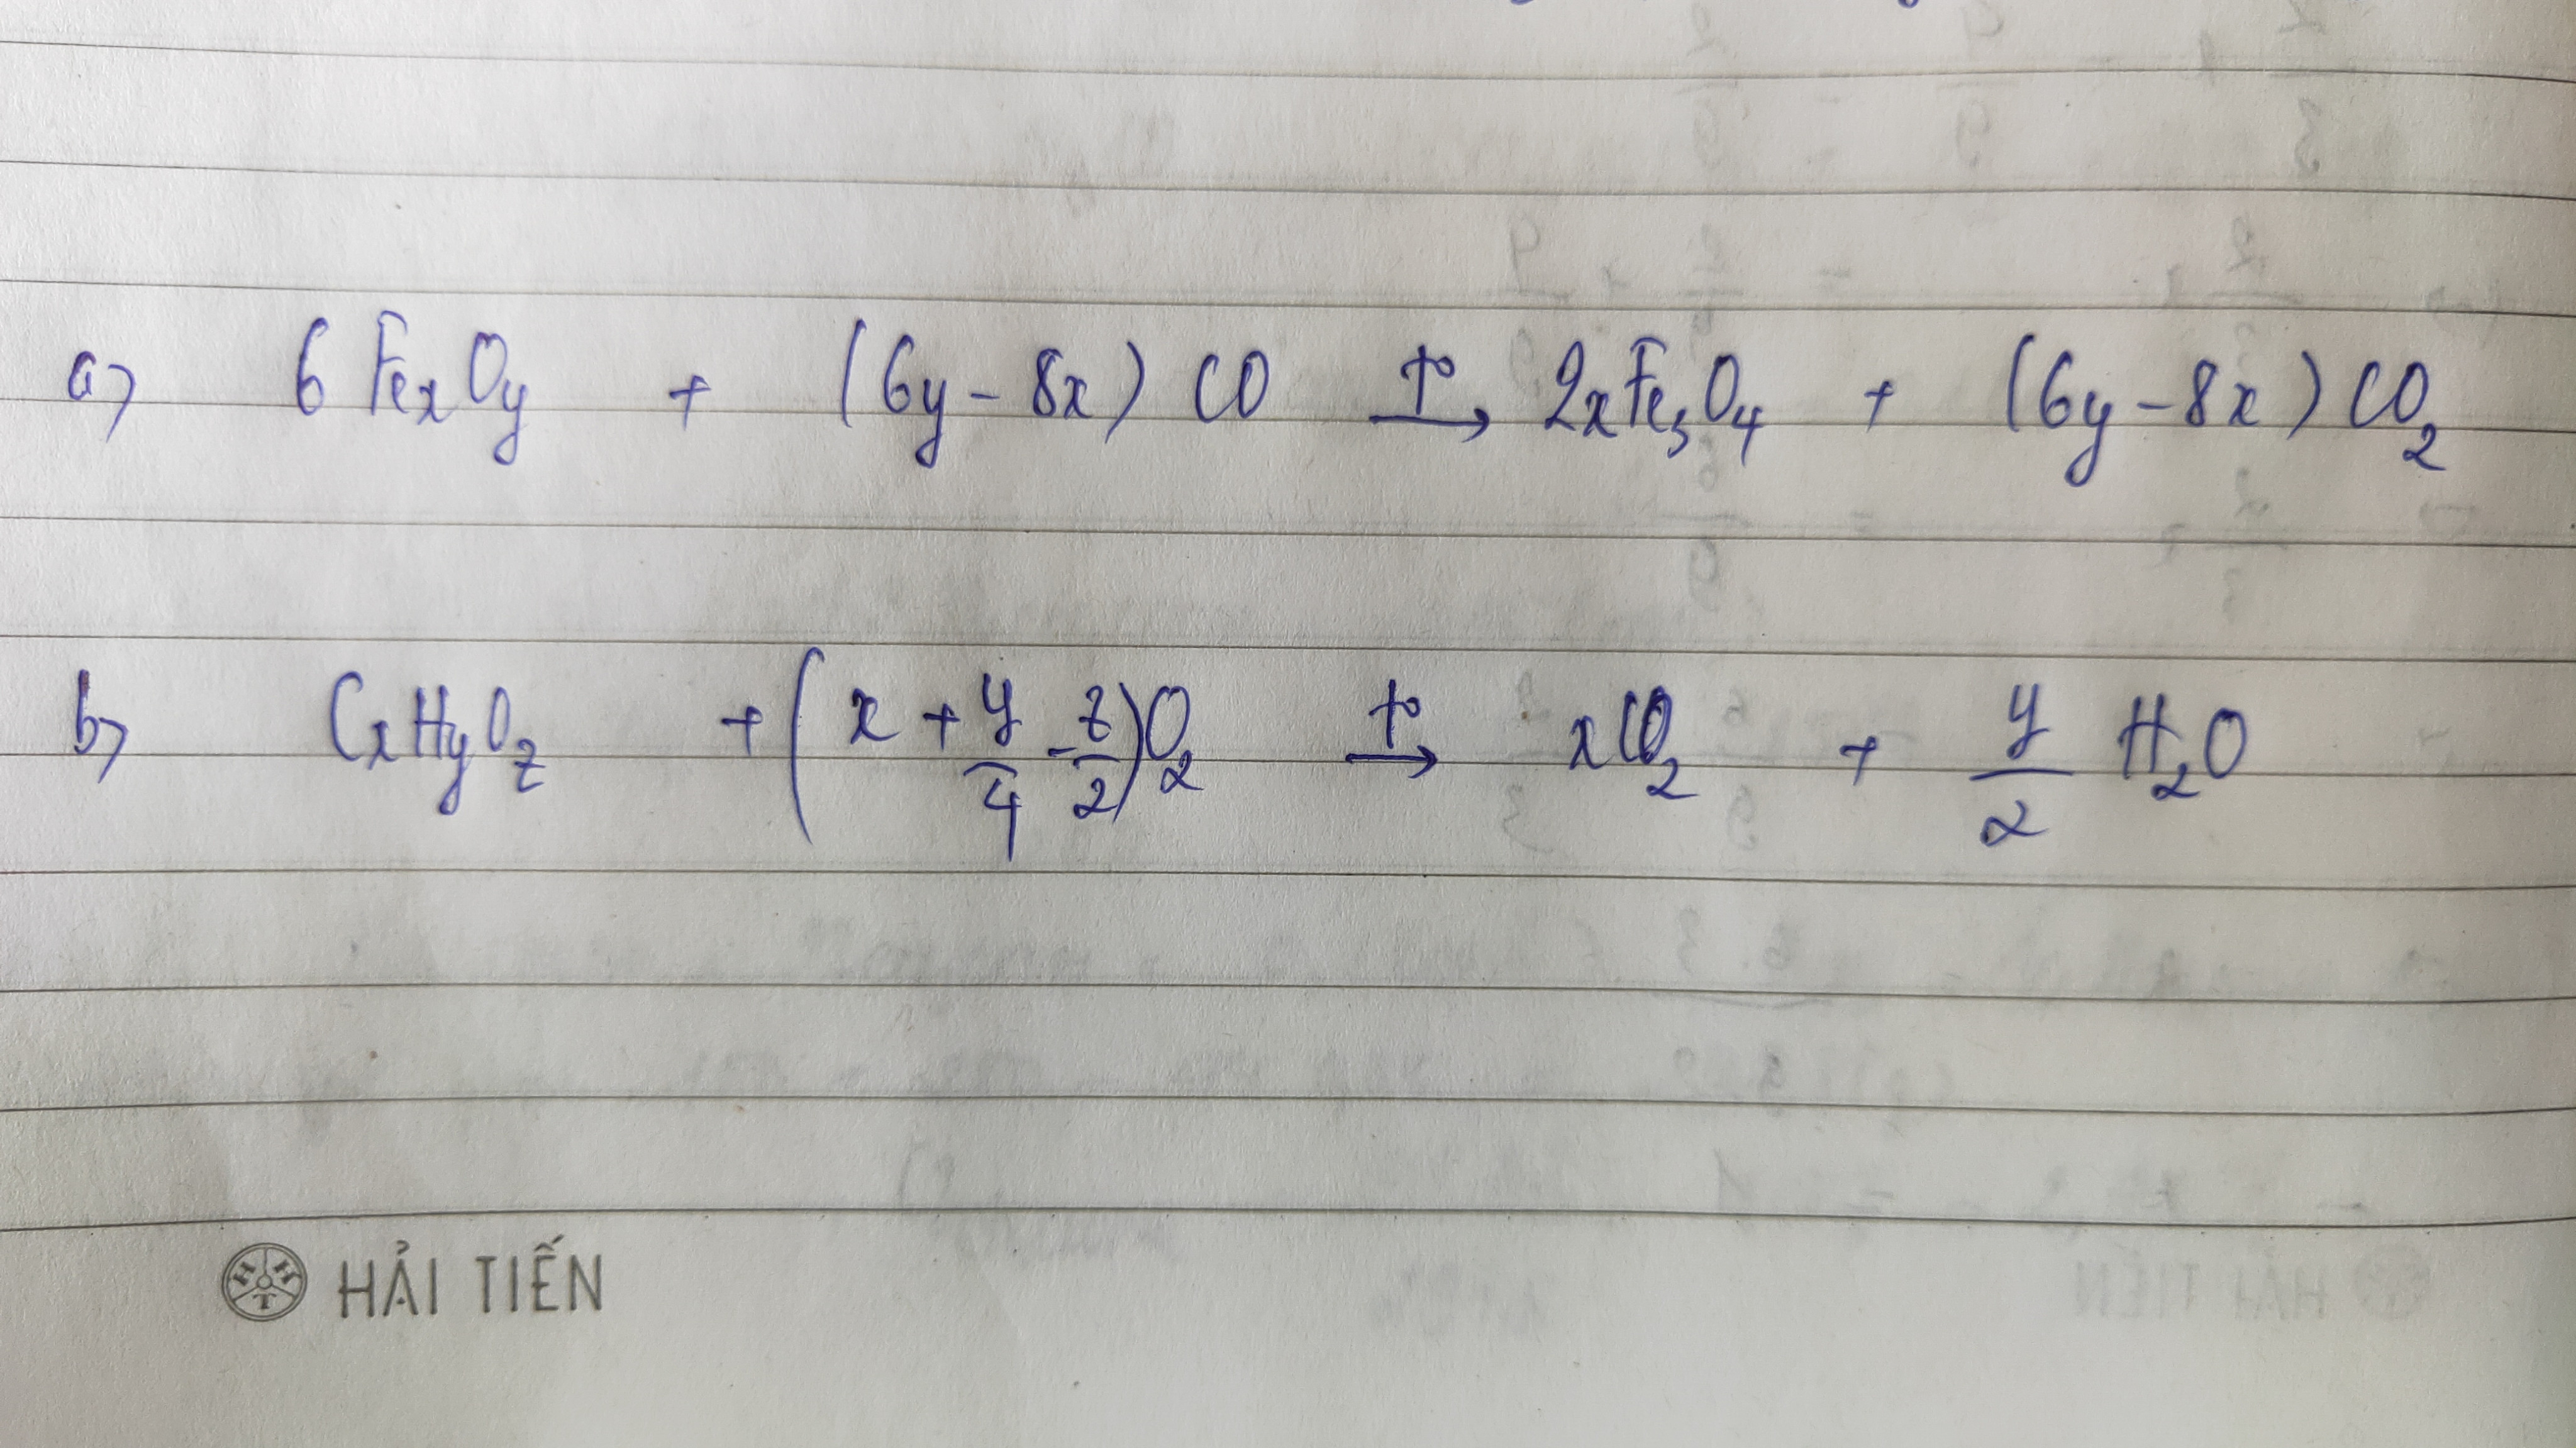 a) 6 FexOy + (6y - 8x) CO t° → 2xFe3O4 + (6y - 8x) CO2
b) CxHyOz + (x + y/4 - z/2)O2 t° → xCO2 + y/2 H2O
HẢI TIẾN